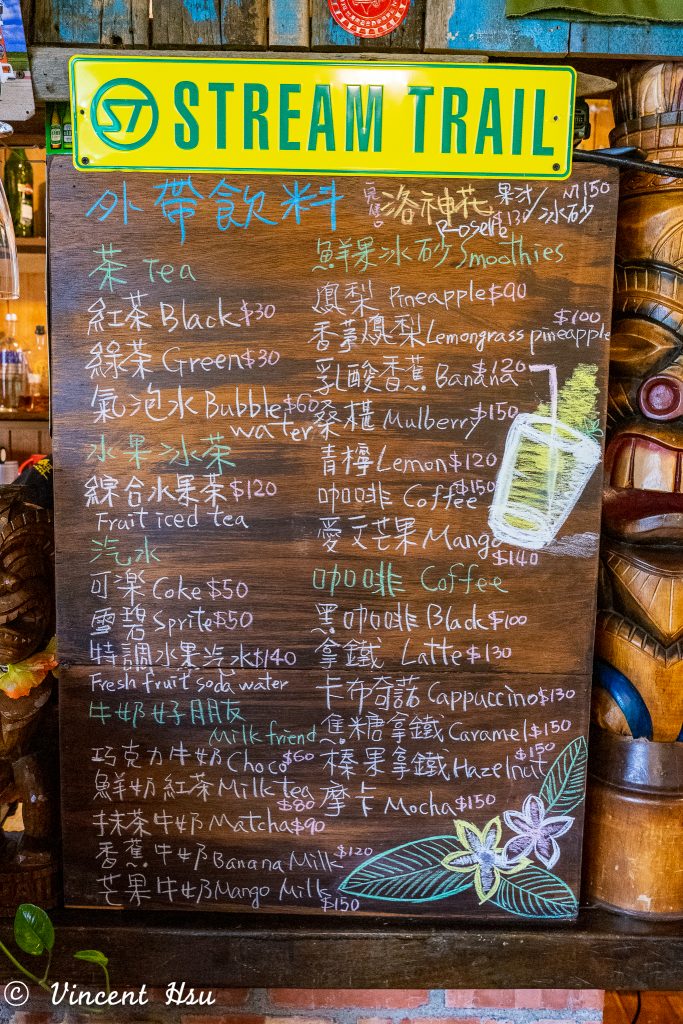 ST STREAM TRAIL
外帶飲料
洛神花 果汁/冰砂
Roselle $130 $150
茶 Tea
紅茶 Black $30
綠茶 Green $30
氣泡水 Bubble $60
water
水果冰茶
綜合水果茶 $120
Fruit iced tea
汽水
可樂 Coke $50
雪碧 Sprite $50
特調水果汽水 $140
Fresh fruit soda water
牛奶好朋友
Milk friend
巧克力牛奶 Choco $60
鮮奶紅茶 Milk tea
$80
抹茶牛奶 Matcha $90
香蕉牛奶 Banana Milk $120
芒果牛奶 Mango Milk
$150
鮮果冰砂 Smoothies
鳳梨 Pineapple $90
香茅鳳梨 Lemongrass pineapple $100
乳酸香蕉 Banana $120
桑椹 Mulberry $150
青檸 Lemon $120
咖啡 Coffee $150
愛文芒果 Mango
$140
咖啡 Coffee
黑咖啡 Black $100
拿鐵 Latte $130
卡布奇諾 Cappuccino $130
焦糖拿鐵 Caramel $150
榛果拿鐵 Hazelnut $150
摩卡 Mocha $150
© Vincent Hsu